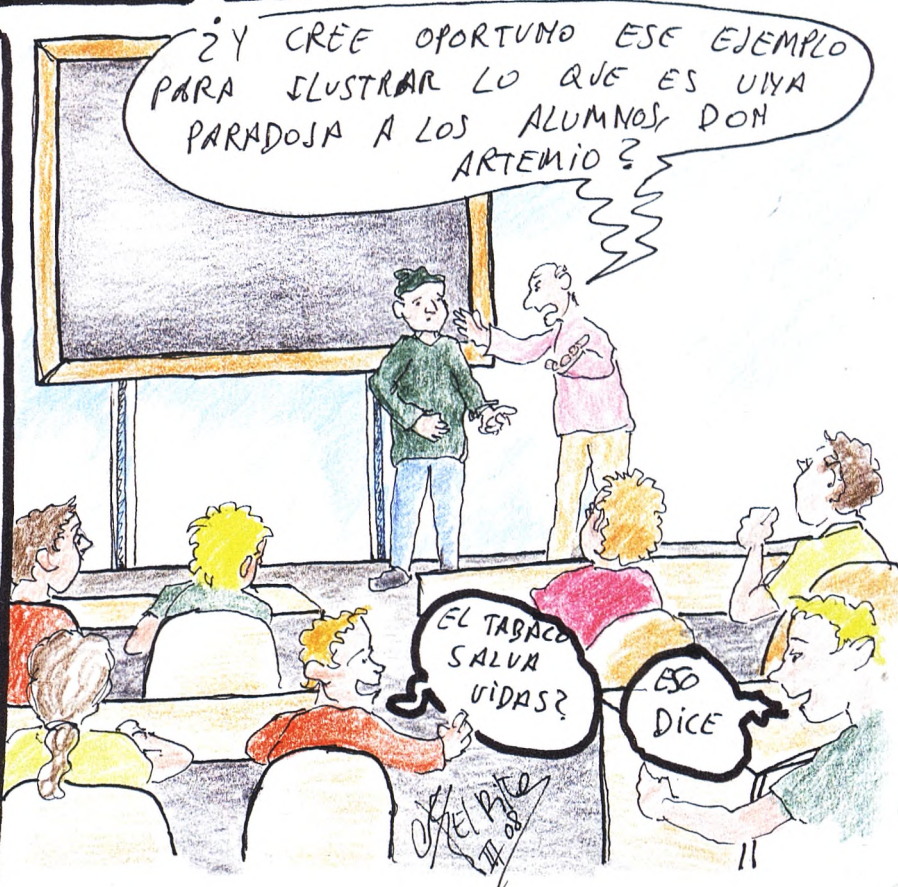 ¿Y CREE OPORTUNO ESE EJEMPLO
PARA ILUSTRAR LO QUE ES UNA
PARADOJA A LOS ALUMNOS, DON
ARTEMIO?
EL TABACO
SALVA
VIDAS?
ESO
DICE
III 08